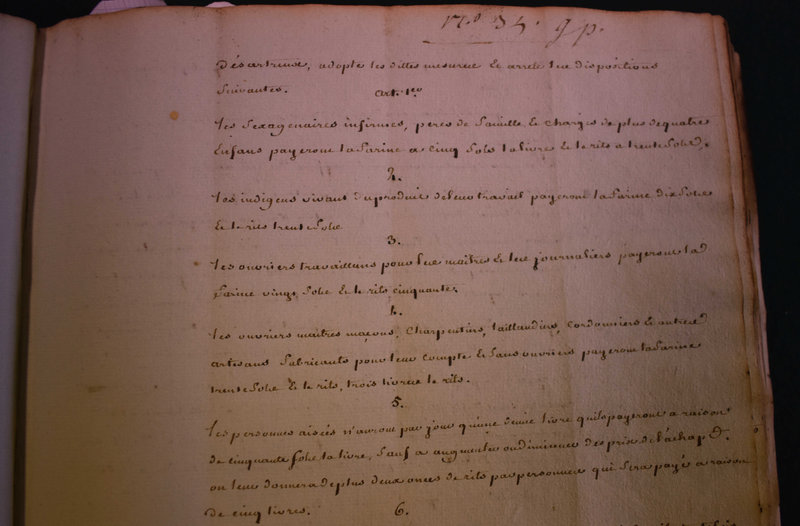 n.° 35. 9 p.
Désastreuse, adopte les dittes mesures et arrete les dispositions
suivantes.
art. 1.er
Les Sexagenaires infirmes, peres de famille et chargés de plus de quatre
Enfans payeront la farine a cinq sols la livre et le rits a trente sols.
2.
Les indigens vivant du produit de leur travail payeront la farine dix sols
et le rits trente sols
3.
Les ouvriers travaillans pour les maitres et les journaliers payeront la
farine vingt sols et le rits cinquante.
4.
Les ouvriers maitres maçons, charpentiers, taillandiers, cordonniers et autres
artisans fabricants pour leur compte et sans ouvriers payeront la farine
trente sols et le rits, trois livres le rits.
5.
Les personnes aisées n'auront par jour qu'une demie livre qu'ils payeront a raison
de cinquante sols la livre, sauf a augmenter ou diminuer des prix de l'achapt.
on leur donnera de plus deux onces de rits par personnes qui sera payé a raison
de cinq livres.
6.